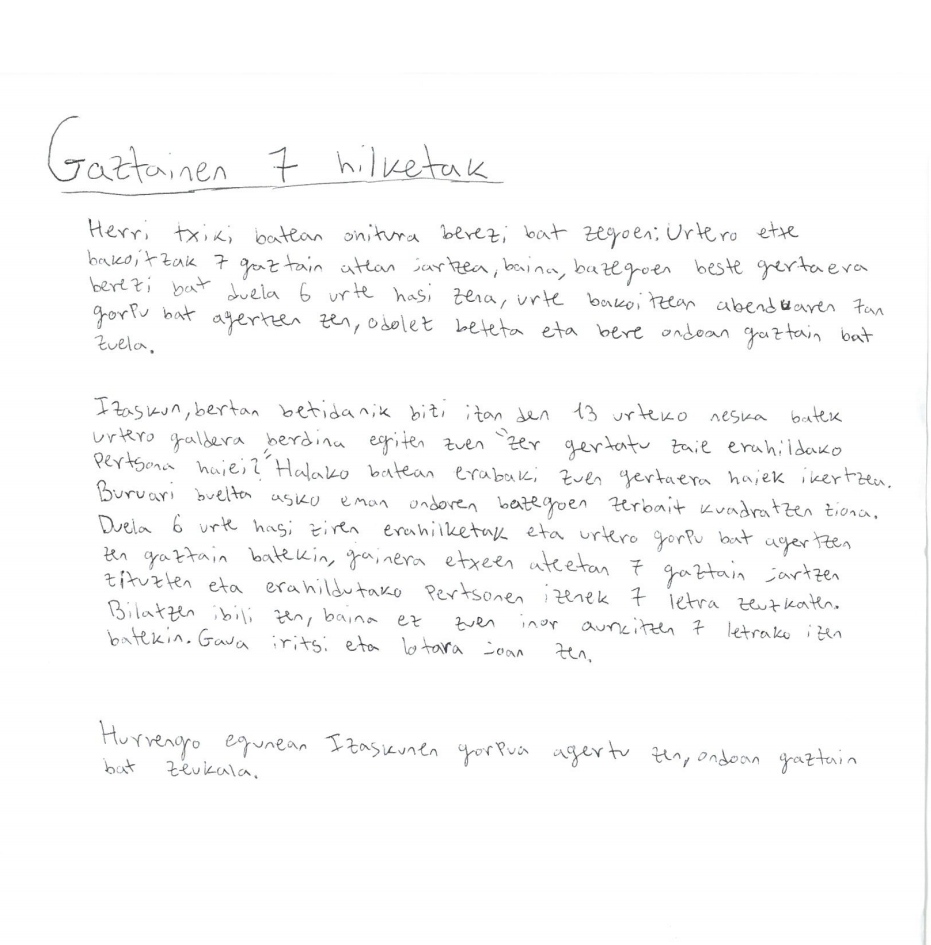 Gaztainen 7 hilketak
Herri txiki batean onitura berezi bat zegoen: Urtero etxe
bakoitzak 7 gaztain atean jartzea, baina, bazegoen beste gertaera
berezi bat duela 6 urte hasi zena, urte bakoitzean abenduaren 7an
gorpu bat agertzen zen, odolez beteta eta bere ondoan gaztain bat
zuela.
Izaskun, bertan betidanik bizi izan den 13 urteko neska batek
urtero galdera berdina egiten zuen "zer gertatu zaie erahildako
pertsona haiei?" Halako batean erabaki zuen gertaera haiek ikertzea.
Buruari buelta asko eman ondoren bazegoen zerbait kuadratzen ziona.
Duela 6 urte hasi ziren erahilketak eta urtero gorpu bat agertzen
zen gaztain batekin, gainera etxeen ateetan 7 gaztain jartzen
zituzten eta erahildutako pertsonen izenek 7 letra zeuzkaten.
Bilatzen ibili zen, baina ez zuen inor aurkitzen 7 letrako izen
batekin. Gaua iritsi eta lotara joan zen.
Hurrengo egunean Izaskunen gorpua agertu zen, ondoan gaztain
bat zeukala.